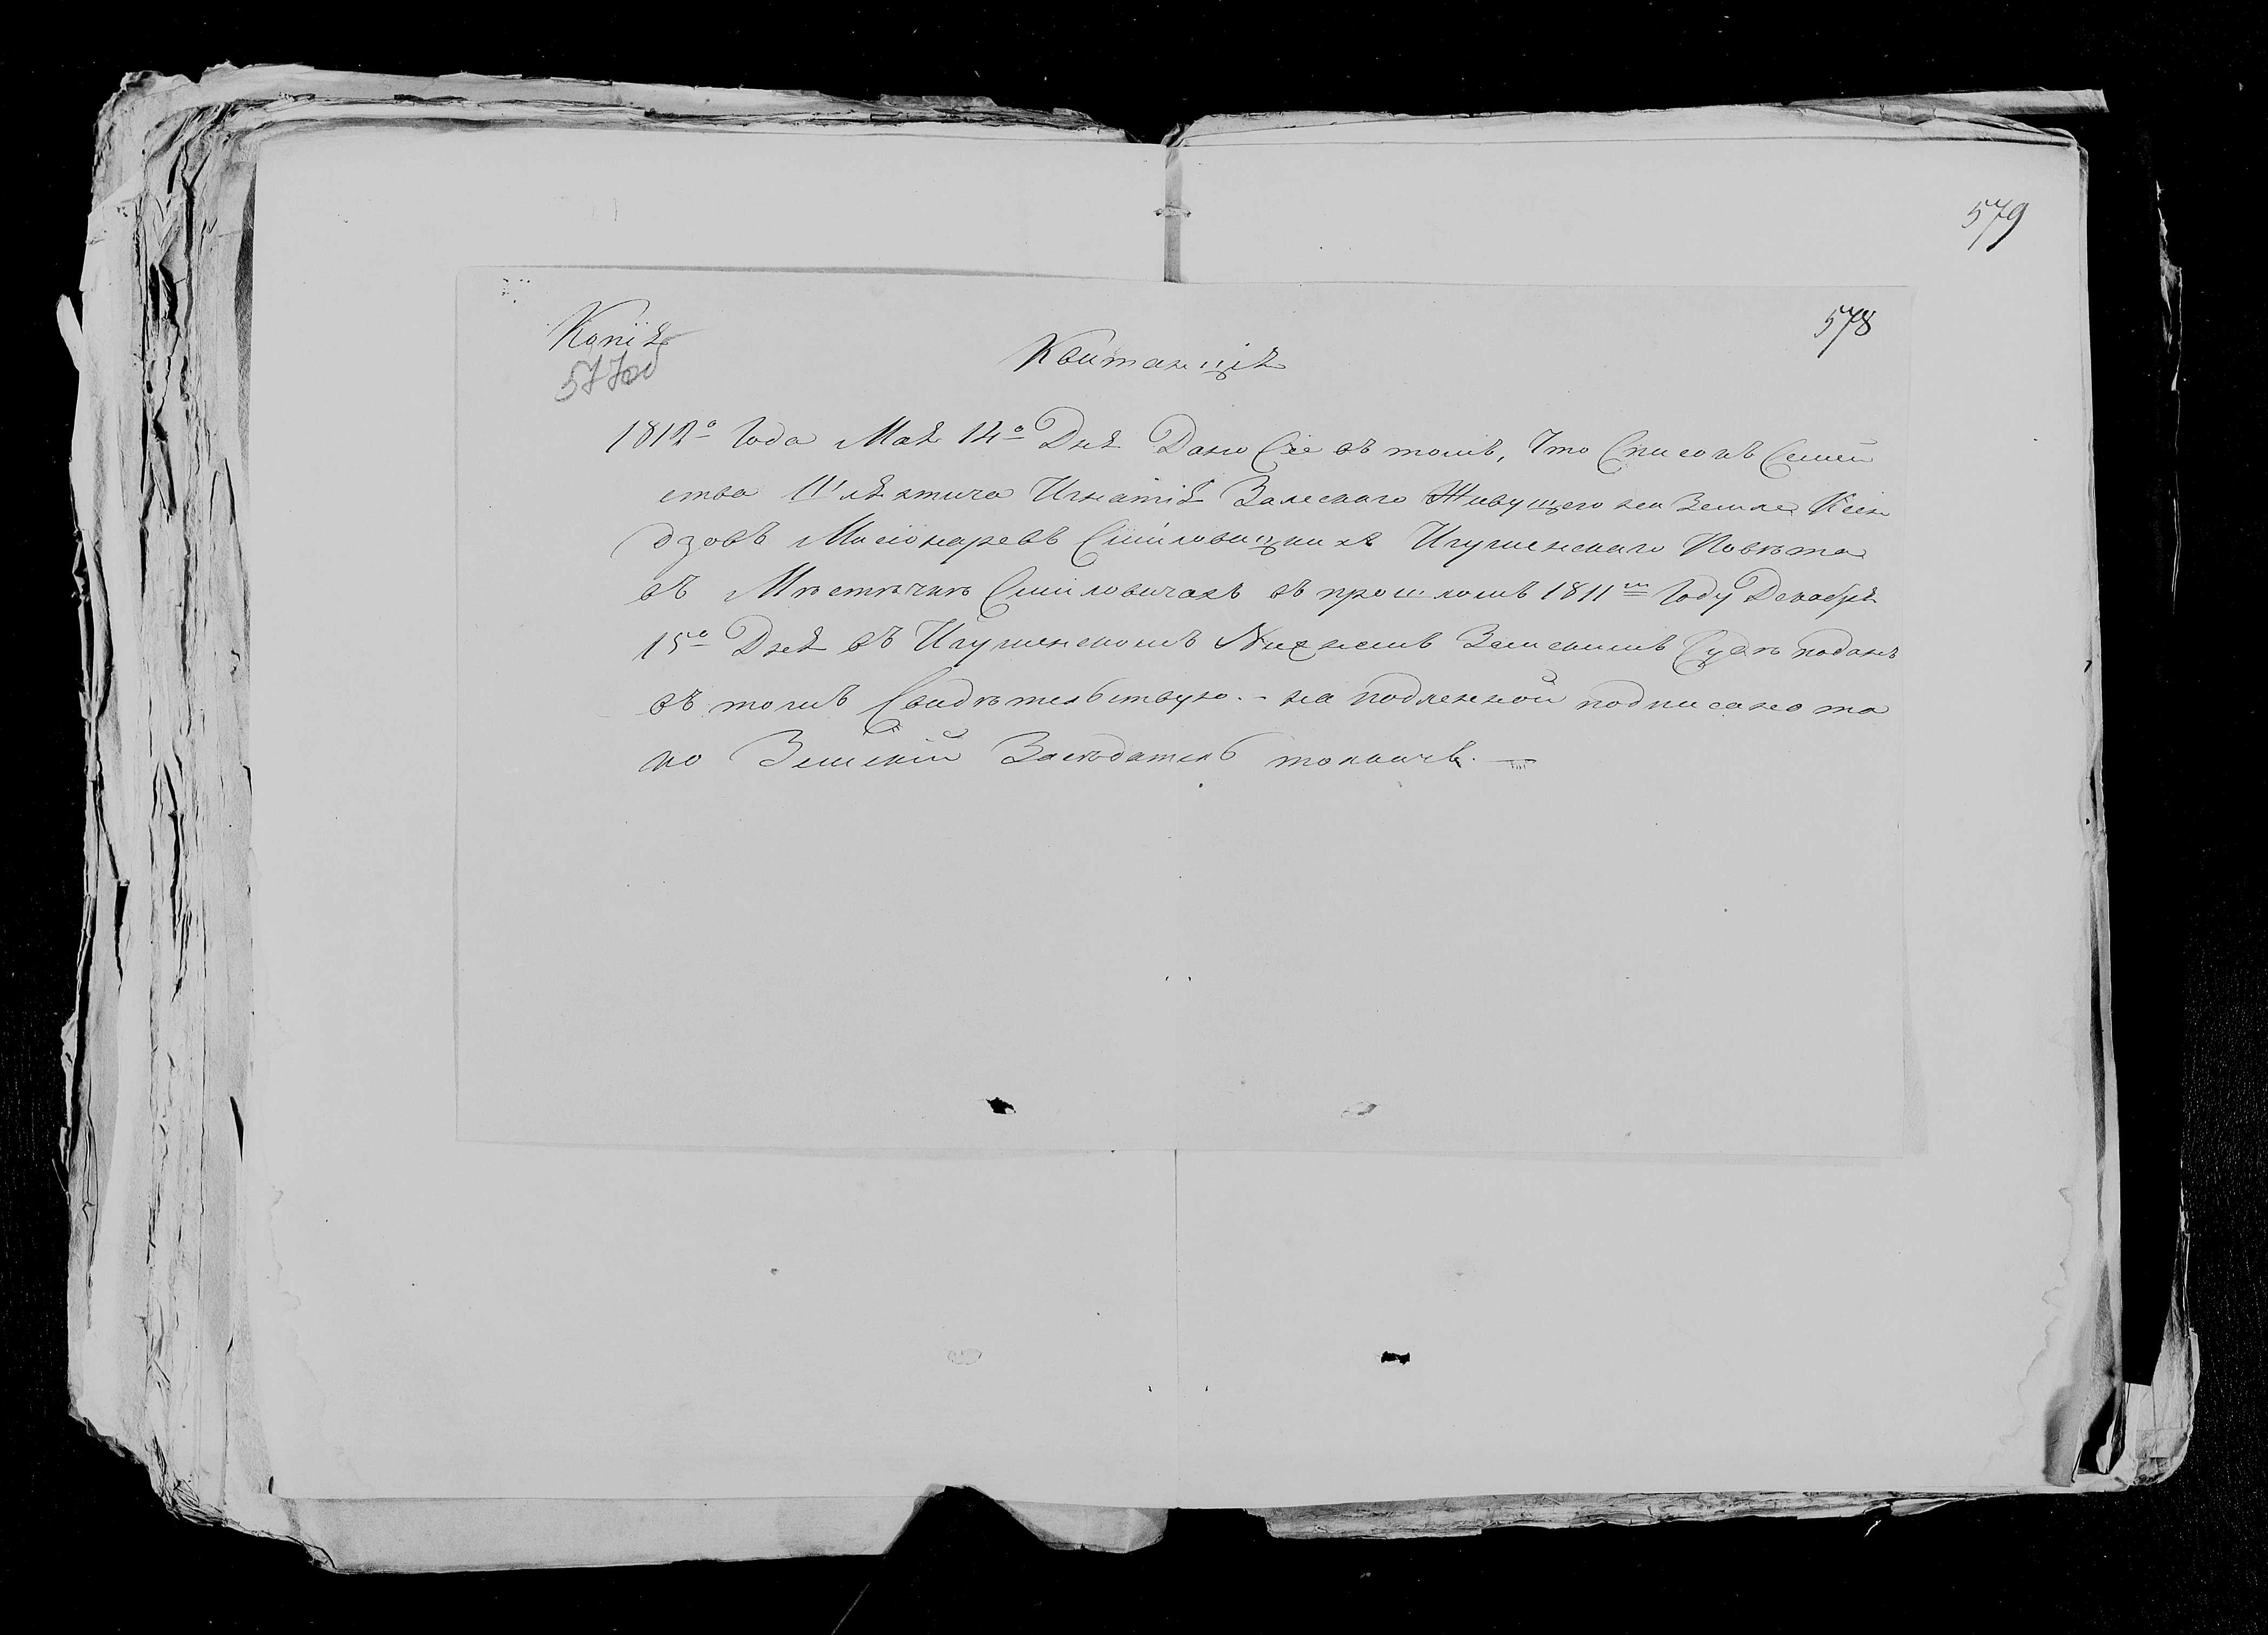 579
578
Копія
577об
Квитанція
1812го Года Мая 14го Дня Дано Сіе въ томъ, что Списокъ Семей
ства Шляхтича Игнатія Залескаго Живущего на Земле Ксен
дзовъ Мисіонаревъ Смиловицкихъ Игуменскаго Повѣта
въ Мѣстѣчкѣ Смиловичахъ въ прошломъ 1811мъ Году Декабря
15го Дня въ Игуменскомъ Нижнемъ Земскимъ Судѣ поданъ
въ томъ Свидѣтельствую. - на подленной подписано та
ко Земскій Засѣдатель толкачъ. —